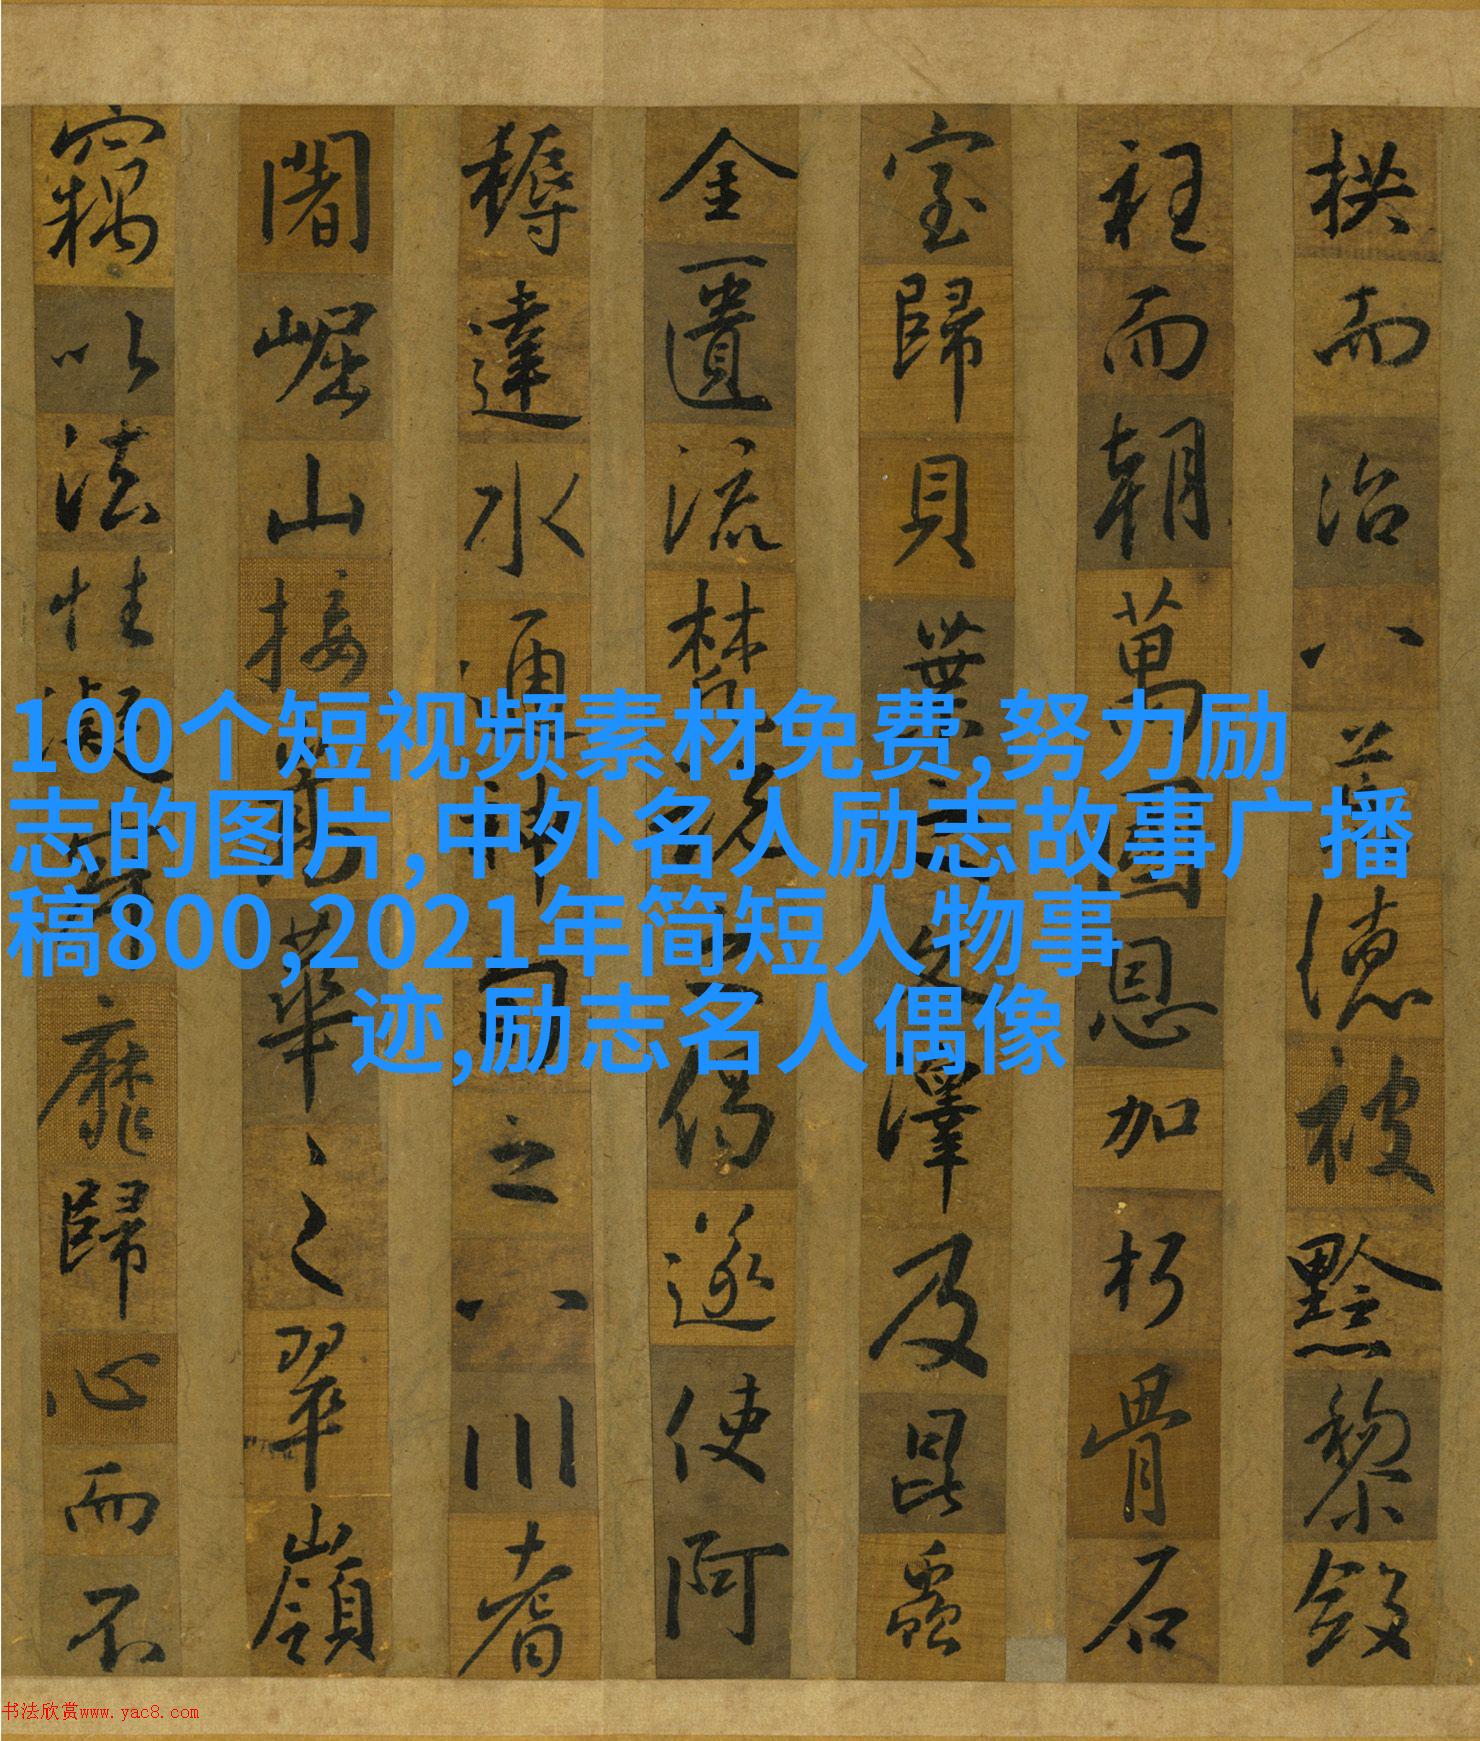 拱而治八荒德被黔黎斂
衽而朝萬國恩加朽骨石
室歸貝葉之文澤及昆蟲
金匱流梵說之偈遂使阿
耨達水通神甸之八川耆
闍崛山接嵩華之翠嶺
竊以法性凝寂靡歸心而不
100个短视频素材免费,努力励
志的图片,中外名人励志故事广播
稿800,2021年简短人物事
迹,励志名人偶像
书法欣赏www.yac8.com